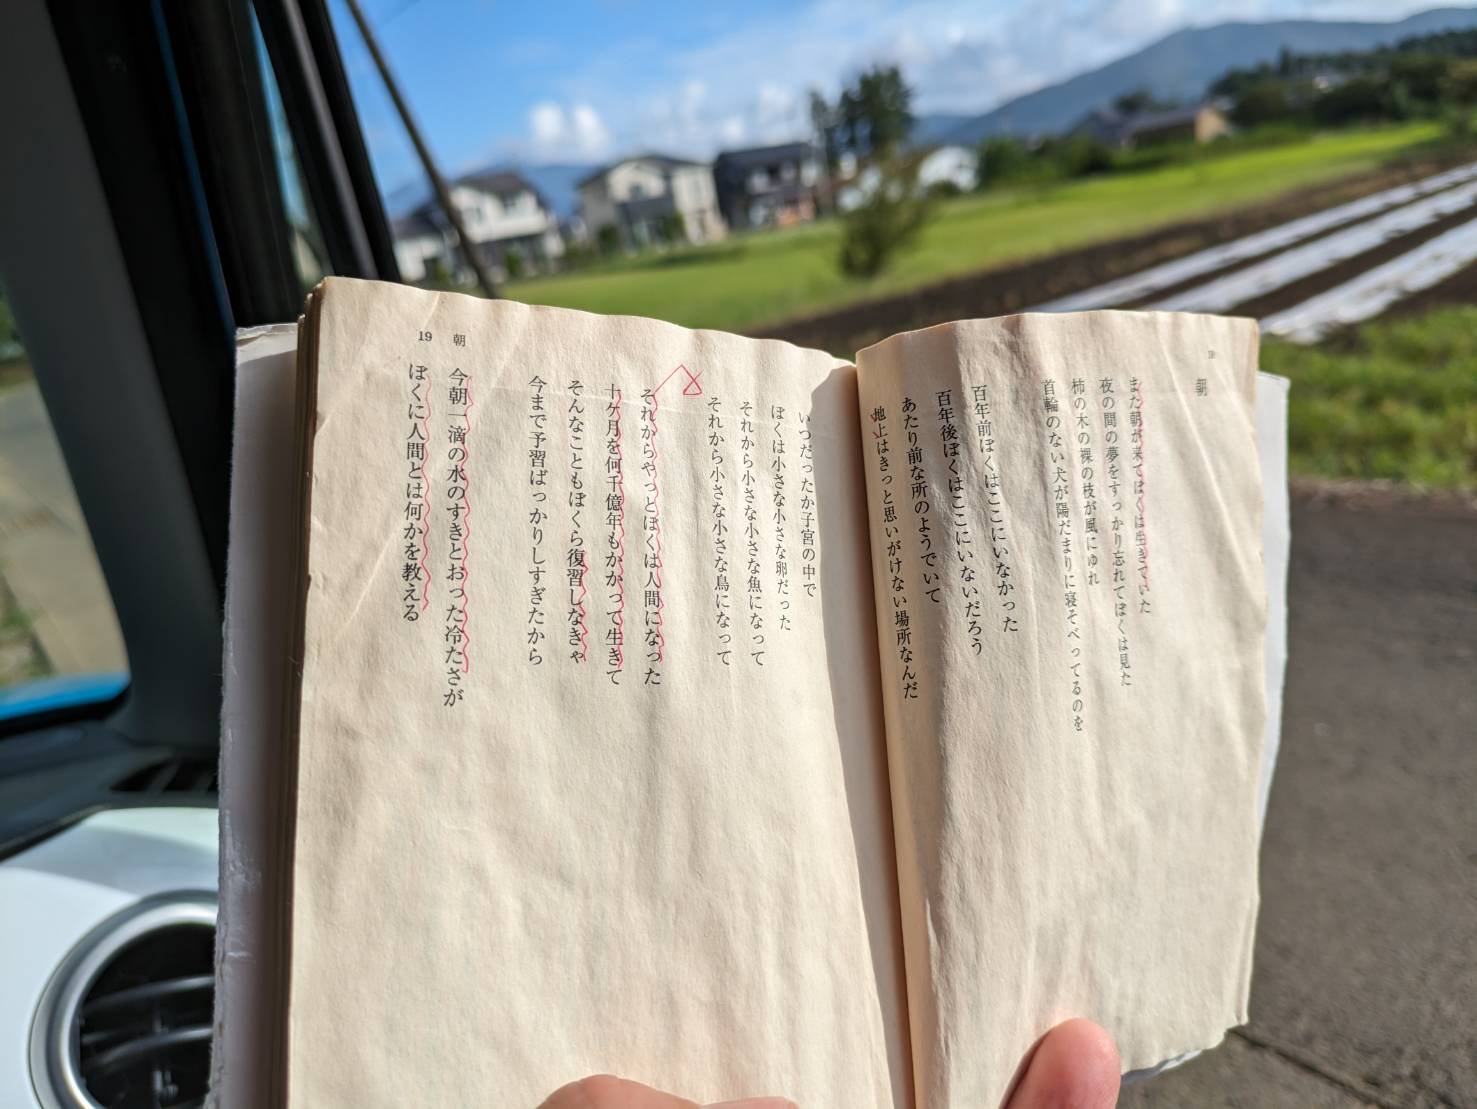 朝
また朝が来てぼくは生きていた
夜の間の夢をすっかり忘れてぼくは見た
柿の木の裸の枝が風にゆれ
首輪のない犬が陽だまりに寝そべってるのを
百年前ぼくはここにいなかった
百年後ぼくはここにいないだろう
あたり前な所のようでいて
地上はきっと思いがけない場所なんだ
いつだったか子宮の中で
ぼくは小さな小さな卵だった
それから小さな小さな魚になって
それから小さな小さな鳥になって
それからやっとぼくは人間になった
十ヶ月を何千億年もかかって生きて
そんなこともぼくら復習しなきゃ
今まで予習ばっかりしすぎたから
今朝一滴の水のすきとおった冷たさが
ぼくに人間とは何かを教える
19 朝